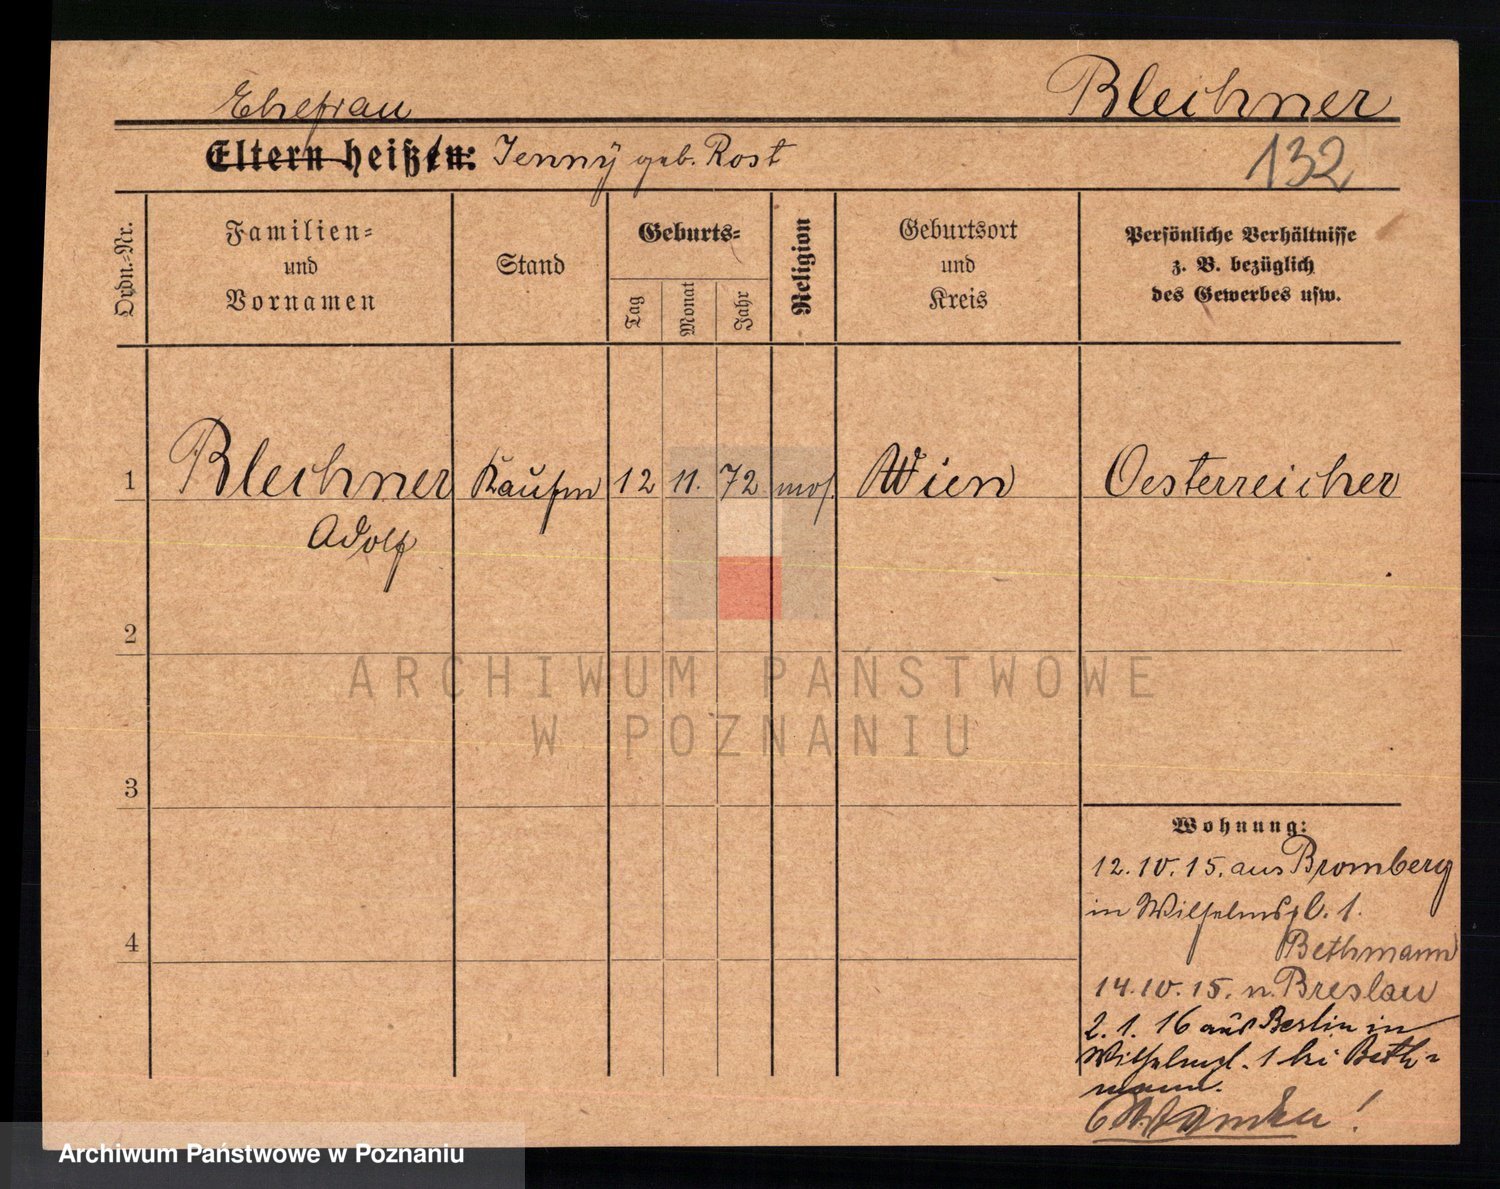 Blechner
Ehefrau
Eltern heißen: Jenny geb. Rost
132
Ordn.-Nr.
Familien-
und
Vornamen
Stand
Geburts-
Tag
Monat
Jahr
Religion
Geburtsort
und
Kreis
Persönliche Verhältnisse
z. B. bezüglich
des Gewerbes usw.
1 Blechner Kaufm 12 11. 72 mos. Wien Oesterreicher
Adolf
2
3
4
Wohnung:
12.10.15. aus Bromberg
in Wilhelmspl. 1.
Bethmann
14.10.15. n. Breslau
2.1.16 aus Berlin in
Wilhelmpl. 1 bei Beth-
mann.
ARCHIWUM PAŃSTWOWE
W POZNANIU
Archiwum Państwowe w Poznaniu